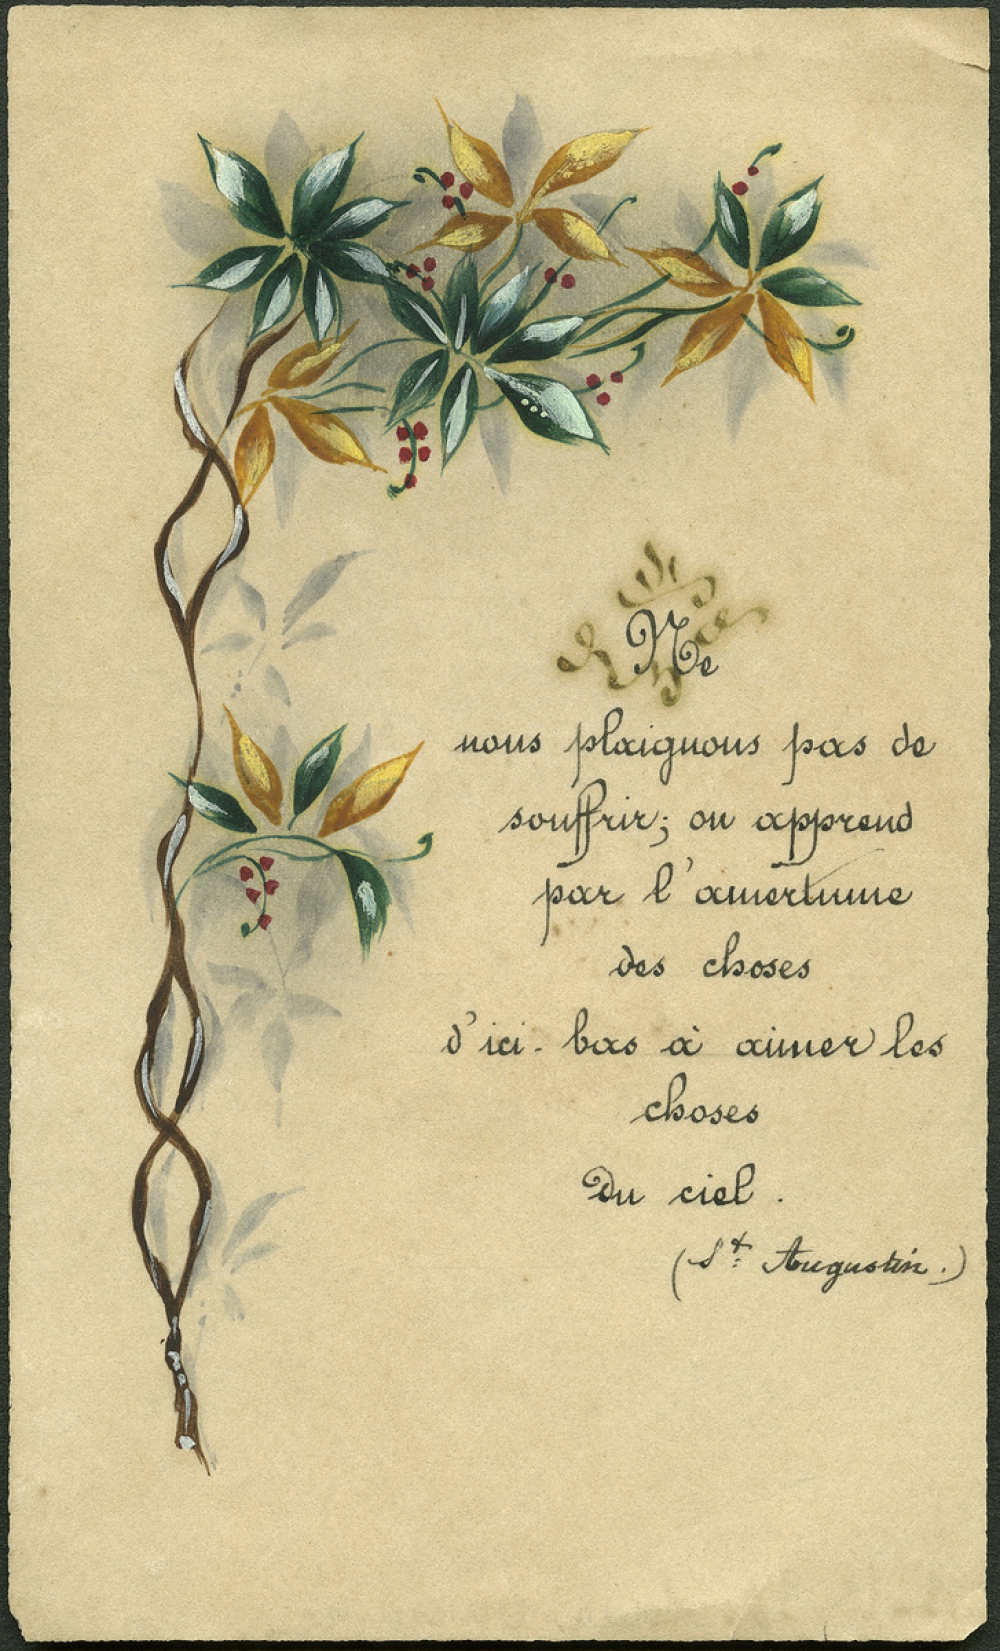 Ne
nous plaignons pas de
souffrir; on apprend
par l'amertume
des choses
d'ici-bas à aimer les
choses
Du ciel.
(St. Augustin.)